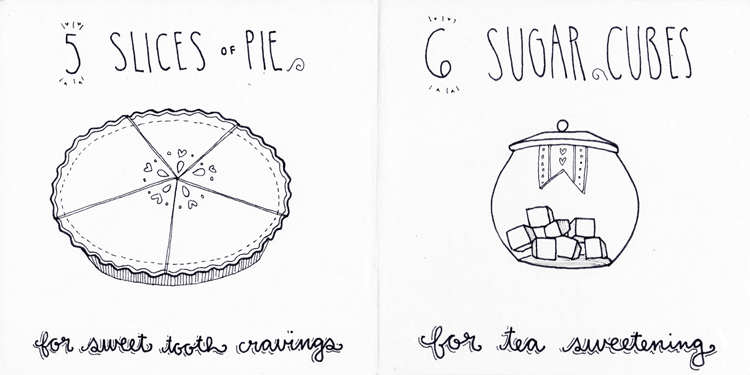 5 SLICES OF PIE
for sweet tooth cravings
6 SUGAR CUBES
for tea sweetening